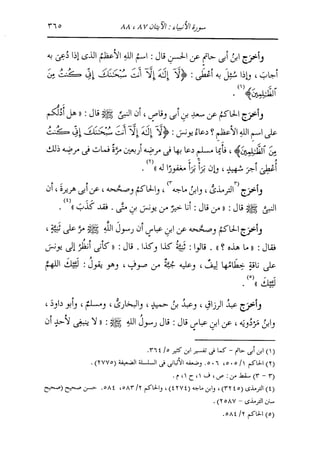 سورة الأنبياء : الآيتان ٨٧ ، ٨٨ ٣٦٥
وأخرج ابنُ أبى حاتمٍ عن الحسنِ قال : اسمُ اللهِ الأعظمُ الذى إذا دُعِىَ به
أجابَ ، وإذا سُئِل به أَعْطَى : ﴿ لَّآ إِلَٰهَ إِلَّآ أَنتَ سُبْحَٰنَكَ إِنِّى كُنتُ مِنَ
ٱلظَّٰلِمِينَ ﴾(١) .
وأخرَج الحاكمُ عن سعدِ بنِ أبى وقاصٍ ، أن النبىَّ ﷺ قال : « هل أَدُلُّكم
على اسمِ اللهِ الأعظمِ ؟ دعاءُ يونسَ : ﴿ لَّآ إِلَٰهَ إِلَّآ أَنتَ سُبْحَٰنَكَ إِنِّى كُنتُ
مِنَ ٱلظَّٰلِمِينَ ﴾ ، فأيُّما مسلمٍ دعا بها فى مرضِه أربعين مرَّةً فمات فى مرضِه ذلك
أُعْطِىَ أجرَ شهيدٍ ، وإن بَرَأَ بَرَأَ مغفورًا له »(٢) .
وأخرَج (٣الترمذىُّ ، وابنُ ماجه٣) ، والحاكمُ وصحَّحه ، عن أبى هريرةَ ، أن
النبىَّ ﷺ قال : « من قال : أنا خيرٌ من يونسَ بنِ متَّى . فقد كذَب »(٤) .
وأخرَج الحاكمُ وصحَّحه عن ابنِ عباسٍ أن رسولَ اللهِ ﷺ مرَّ على ثَنِيَّةٍ ،
فقال : « ما هذه ؟ » . قالوا : ثَنِيَّةُ كذا وكذا . قال : « كأنى أنظُرُ إلى يونسَ
على ناقةٍ خِطامُها لِيفٌ ، وعليه جُبَّةٌ من صوفٍ ، وهو يقولُ : لَبَّيْك اللهمَّ
لَبَّيْك »(٥) .
وأخرَج عبدُ الرزاقِ ، وعبدُ بنُ حميدٍ ، والبخارىُّ ، ومسلمٌ ، وأبو داودَ ،
وابنُ مَرْدُويَه ، عن ابنِ عباسٍ قال : قال رسولُ اللهِ ﷺ : « لا ينبغى لأحدٍ أن
(١) ابن أبى حاتم - كما فى تفسير ابن كثير ٥/ ٣٦٤.
(٢) الحاكم ١/ ٥٠٥، ٥٠٦. وضعفه الألبانى فى السلسلة الضعيفة (٢٧٧٥).
(٣ - ٣) سقط من : ص، ف ١، ح ١، م .
(٤) الترمذى (٣٢٤٥)، وابن ماجه (٤٢٧٤)، والحاكم ٢/ ٥٨٣، ٥٨٤. حسن صحيح (صحيح
سنن الترمذى - ٢٥٨٧).
(٥) الحاكم ٢/ ٥٨٤.